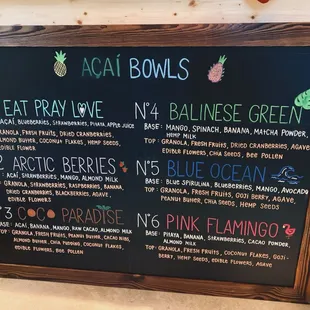 AÇAÍ BOWLS
EAT PRAY LOVE
AÇAÍ, BLUEBERRIES, STRAWBERRIES, PITAYA, APPLE JUICE
GRANOLA, FRESH FRUITS, DRIED CRANBERRIES,
ALMOND BUTTER, COCONUT FLAKES, HEMP SEEDS,
EDIBLE FLOWER
2 ARCTIC BERRIES
AÇAÍ, STRAWBERRIES, MANGO, ALMOND MILK
GRANOLA, STRAWBERRIES, RASPBERRIES, BANANA,
DRIED CRANBERRIES, BLACKBERRIES, AGAVE
EDIBLE FLOWERS
3 COCO PARADISE
AÇAÍ, BANANA, MANGO, RAW CACAO, ALMOND MILK
GRANOLA, FRESH FRUITS, PEANUT BUTTER, CACAO NIBS,
ALMOND BUTTER, CHIA PUDDING, COCONUT FLAKES,
EDIBLE FLOWERS, BEE POLLEN
Nº4 BALINESE GREEN
BASE: MANGO, SPINACH, BANANA, MATCHA POWDER,
HEMP MILK
TOP: GRANOLA, FRESH FRUITS, DRIED CRANBERRIES, AGAVE
EDIBLE FLOWERS, CHIA SEEDS, BEE POLLEN
Nº5 BLUE OCEAN
BASE: BLUE SPIRULINA, BLUEBERRIES, MANGO, AVOCADO
TOP: GRANOLA, FRESH FRUITS, GOJI BERRY, AGAVE,
PEANUT BUTTER, CHIA SEEDS, HEMP SEEDS
Nº6 PINK FLAMINGO
BASE: PITAYA, BANANA, STRAWBERRIES, CACAO POWDER,
ALMOND MILK
TOP: GRANOLA, FRESH FRUITS, COCONUT FLAKES, GOJI-
BERRY, HEMP SEEDS, EDIBLE FLOWERS, AGAVE